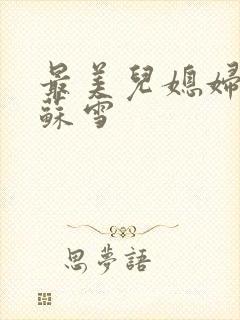 最美兒媳婦
蘇雪
思夢語